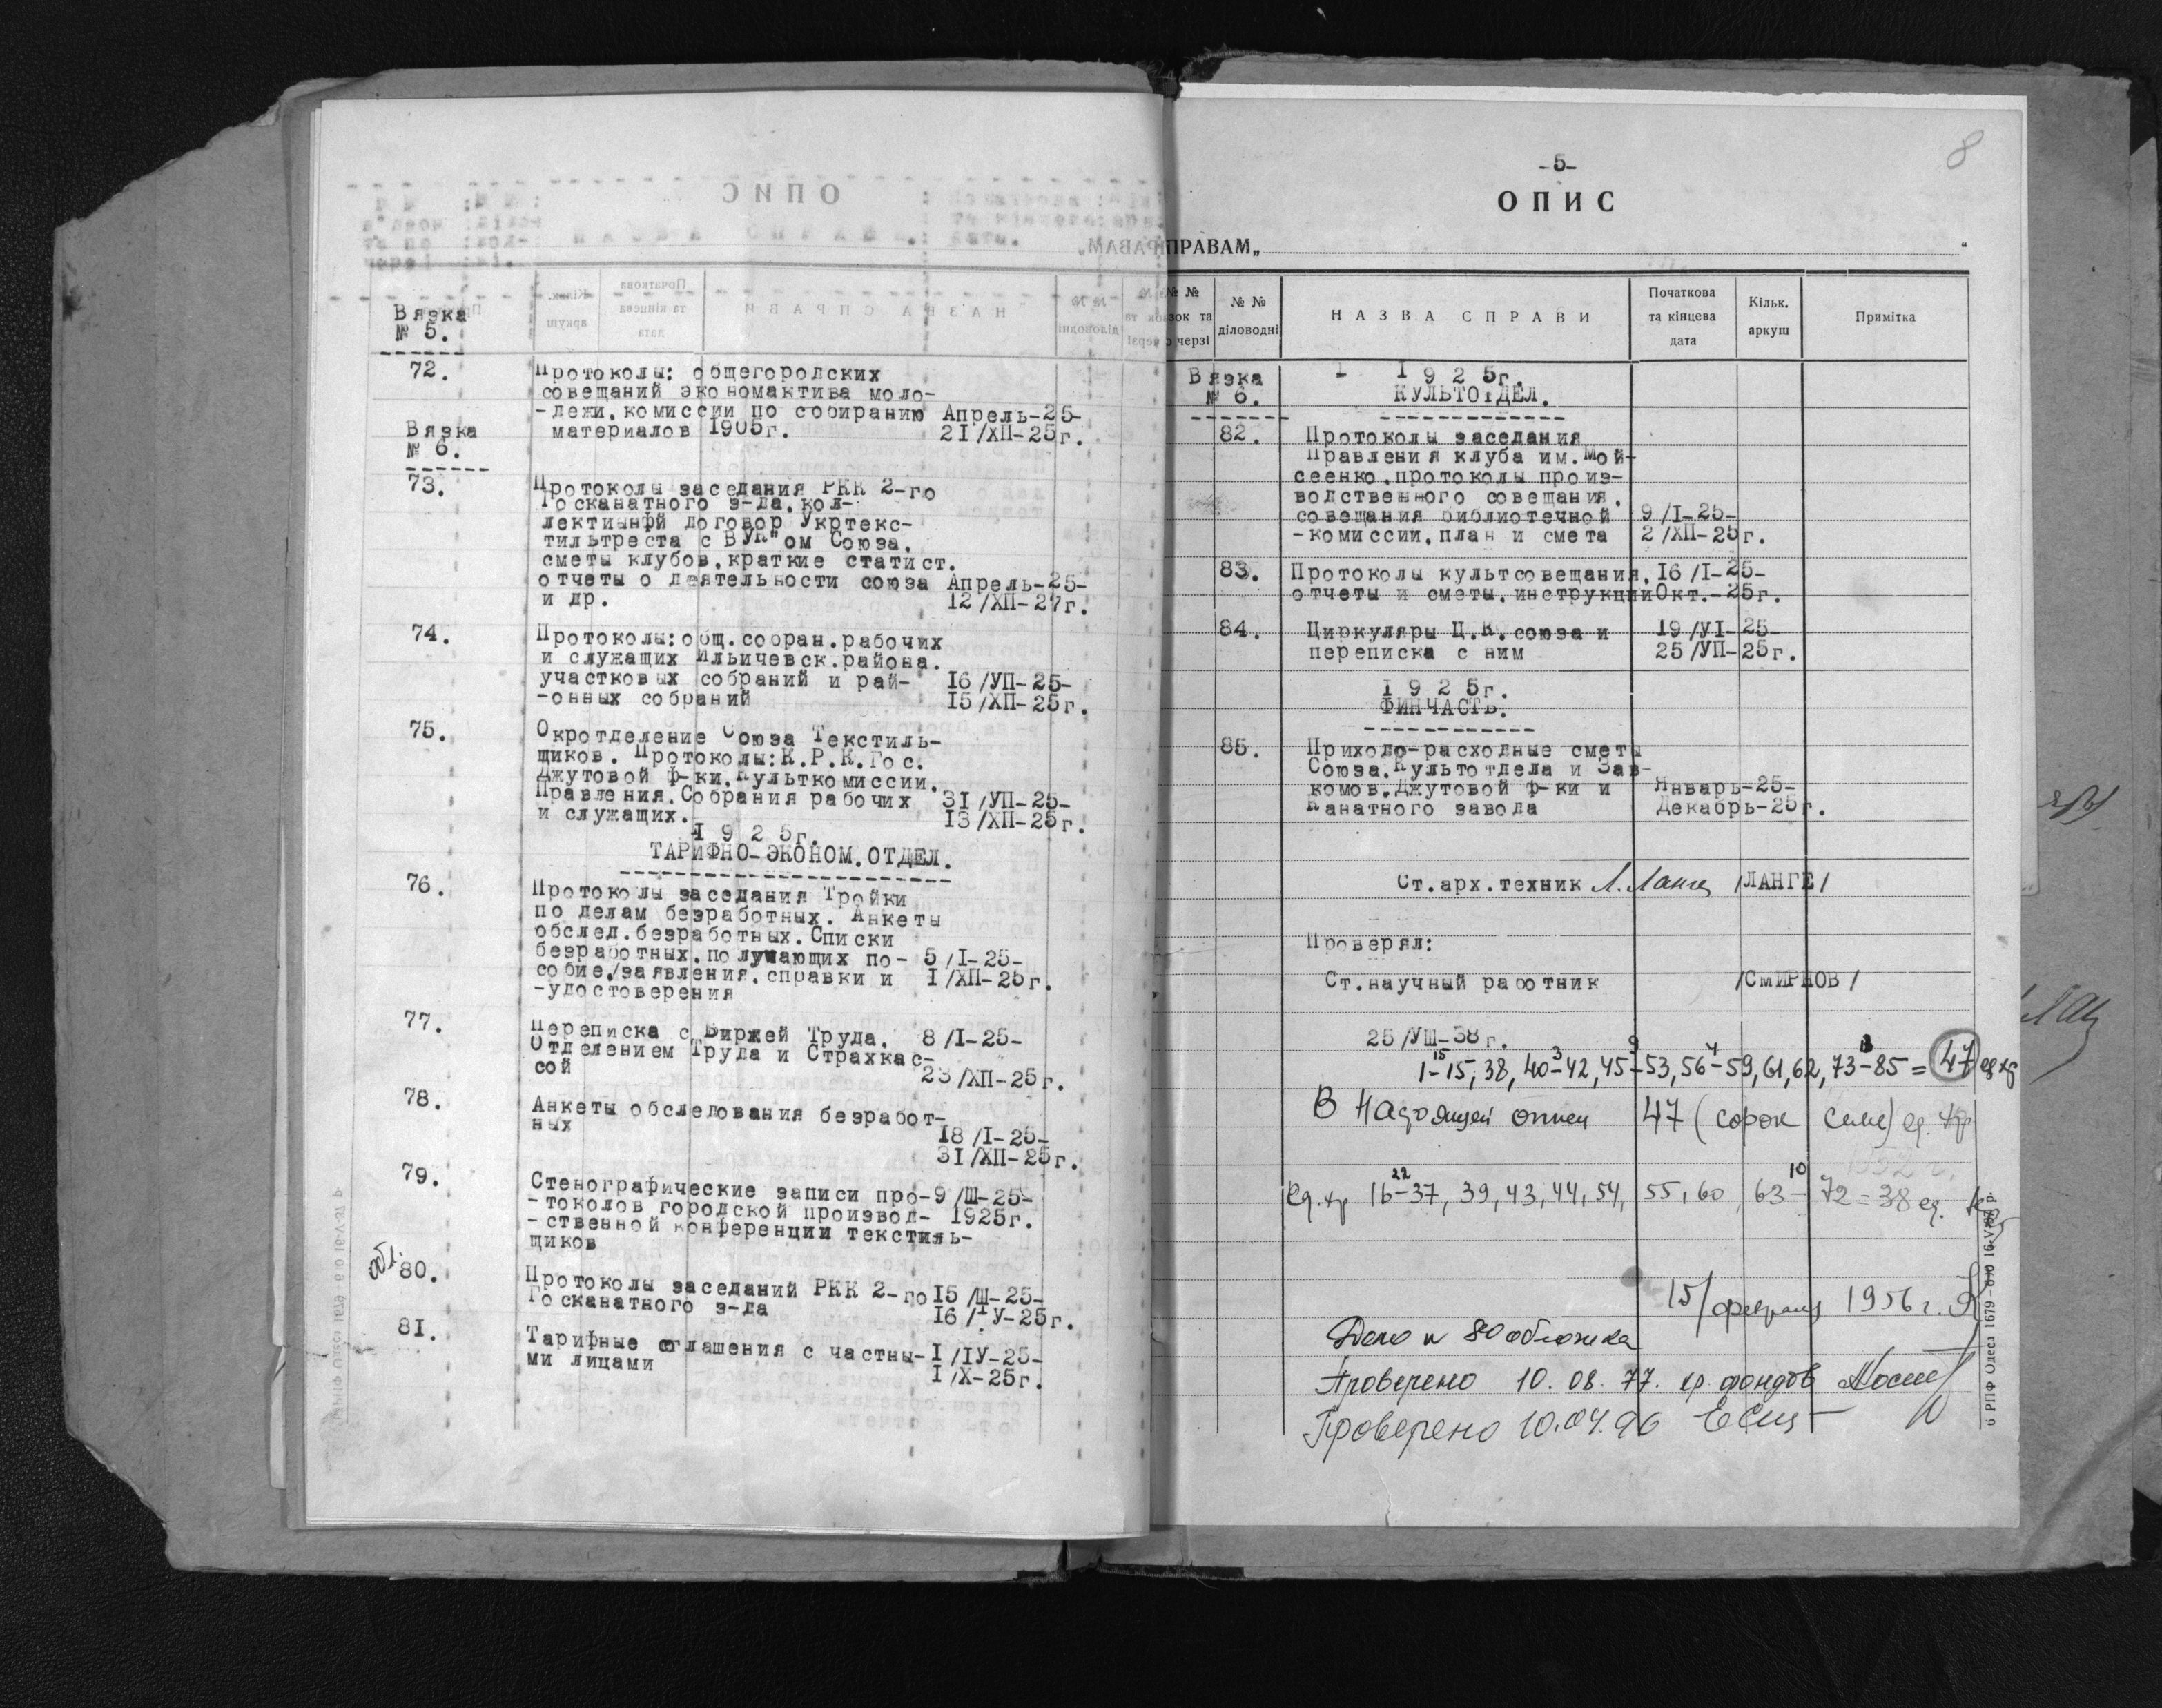 Вязка
№ 5.
72. Протоколы: общегородских
совещаний экономактива моло-
-дежи.комиссии по собиранию Апрель-25-
материалов 1905г. 21/ХП-25г.
Вязка
№ 6.
73. Протоколы заседания РКК 2-го
Госканатного з-да.кол-
лективнфй договор Укртекс-
тильтреста с ВУК"ом Союза.
сметы клубов.краткие статист.
отчеты о деятельности союза Апрель-25-
и др. 12/ХП-27г.
74. Протоколы:общ.собран.рабочих
и служащих Ильичевск.района.
участковых собраний и рай- 16/УП-25-
-онных собраний 15/ХП-25г.
75. Окротделение Союза Текстиль-
щиков. Протоколы:К.Р.К.Гос.
Джутовой ф-ки.Культкомиссии.
Правления.Собрания рабочих 31/УП-25-
и служащих. 13/ХП-25г.
1 9 2 5г.
ТАРИФНО-ЭКОНОМ.ОТДЕЛ.
76. Протоколы заседания Тройки
по делам безработных. Анкеты
обслед.безработных.Списки
безработных.получающих по- 5/I-25-
собие./заявления.справки и I/ХП-25г.
-удостоверения
77. Переписка с Биржей Труда. 8/I-25-
Отделением Труда и Страхкас-
сой 23/ХП-25г.
78. Анкеты обследования безработ-
ных 18/I-25-
31/ХП-25г.
79. Стенографические записи про-9/Ш-25-
-токолов городской производ- 1925г.
-ственной конференции текстиль-
щиков
обл. 80. Протоколы заседаний РКК 2-го 15/Ш-25-
Госканатного з-да 16/IУ-25г.
81. Тарифные оглашения с частны-I/IУ-25-
ми лицами I/Х-25г.
8
-5-
ОПИС
ПРАВАМ„ “
№ № зок та черзі
№ № діловодні
НАЗВА СПРАВИ
Початкова та кінцева дата
Кільк. аркуш
Примітка
Вязка
№ 6.
- 1 9 2 5г.
КУЛЬТОТДЕЛ.
82. Протоколы заседания
Правления клуба им.Мой-
сеенко.протоколы произ-
водственного совещания.
совещания библиотечной 9/I-25-
-комиссии.план и смета 2/ХП-25г.
83. Протоколы культсовещания. 16/I-25-
отчеты и сметы.инструкции Окт.-25г.
84. Циркуляры Ц.К.союза и 19/УI-25-
переписка с ним 25/УП-25г.
1 9 2 5г.
ФИНЧАСТЬ.
85. Приходо-расходные сметы
Союза.Культотдела и Зав-
комов.Джутовой ф-ки и Январь-25-
Канатного завода Декабрь-25г.
Ст.арх.техник Л.Ланге /ЛАНГЕ/
Проверял:
Ст.научный работник /СМИРНОВ/
25/УШ-38г.
15 3 9 4 13
1-15, 38, 40-42, 45-53, 56-59, 61, 62, 73-85 = 47 ед хр
В настоящей описи 47 (сорок семь) ед. хр
22 10
Ед.хр 16-37, 39, 43, 44, 54, 55, 60, 63-72 - 38 ед. хр
15/февраля 1956 г.
Дело н 80 обложка
Проверено 10.08.77. хр.фондов
Проверено 10.04.96
6 РПФ Одесі 1679